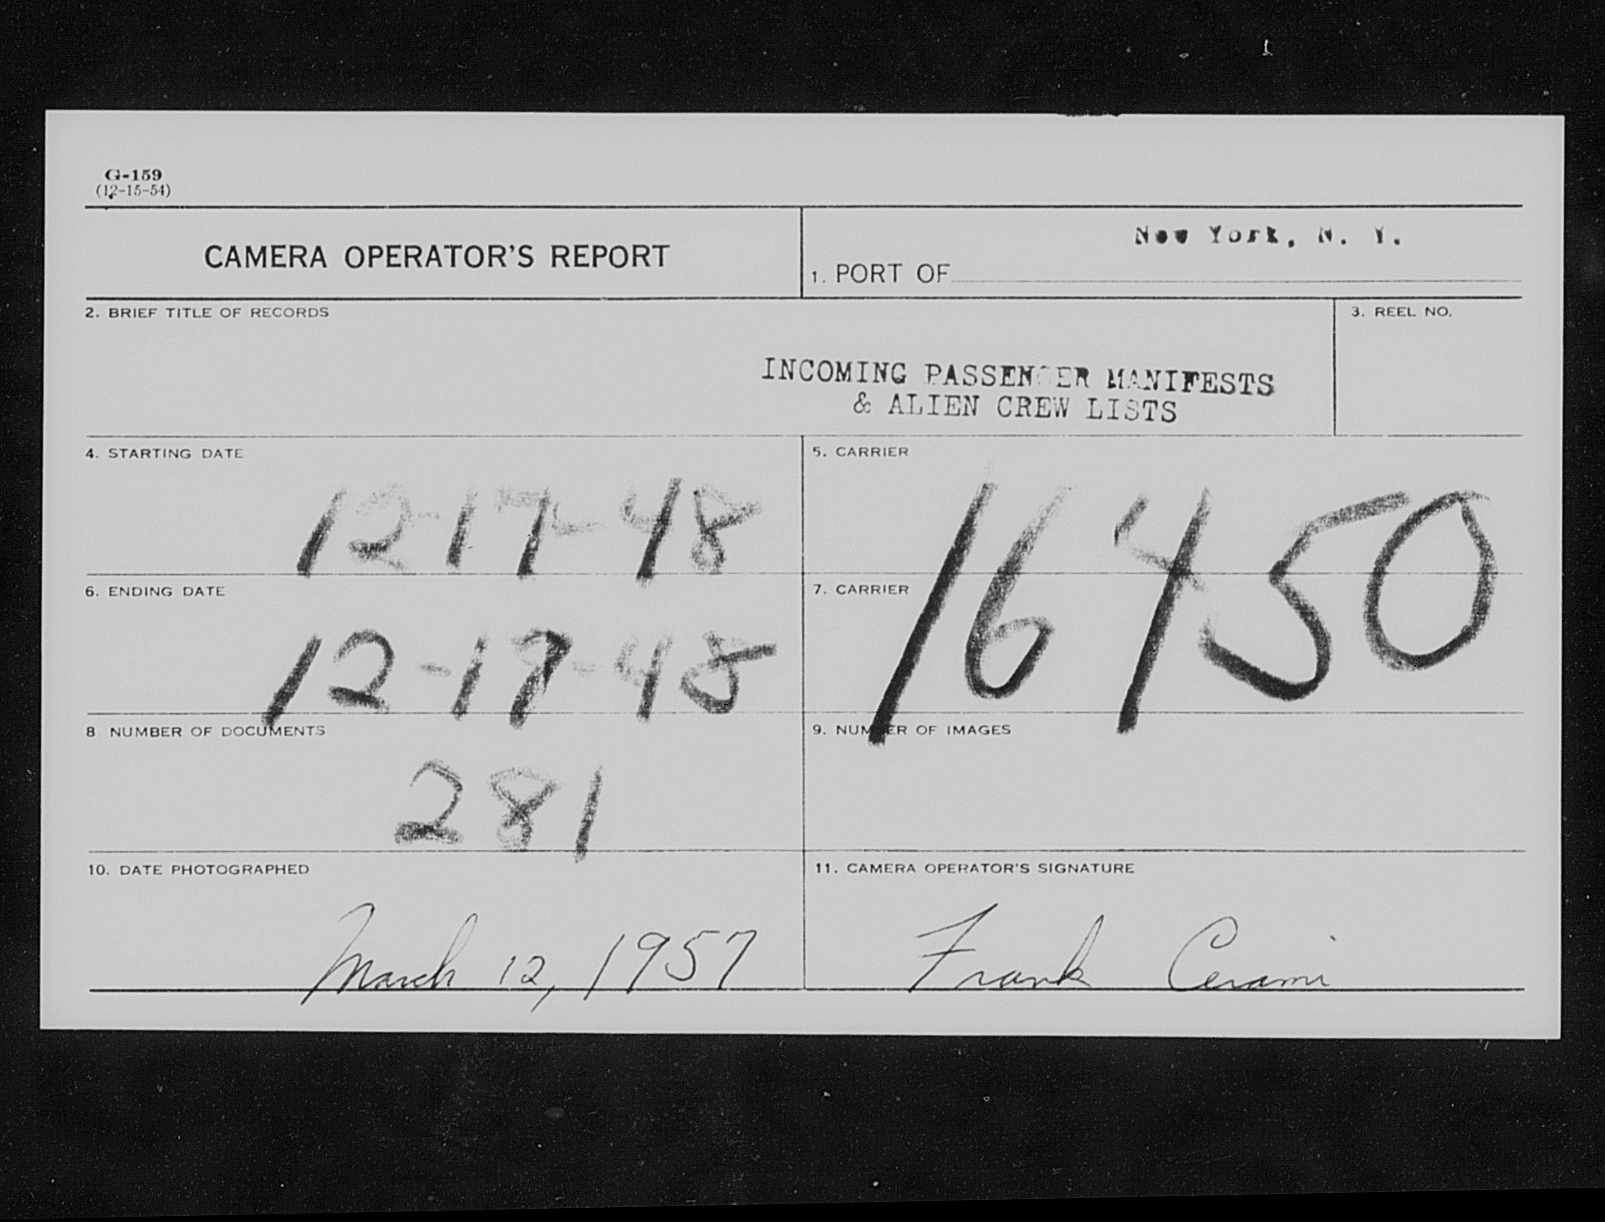 G-159
(12-15-54)
CAMERA OPERATOR'S REPORT
New York, N. Y.
1. PORT OF
2. BRIEF TITLE OF RECORDS
3. REEL NO.
INCOMING PASSENGER MANIFESTS
& ALIEN CREW LISTS
4. STARTING DATE
12-17-48
5. CARRIER
16450
6. ENDING DATE
12-17-48
7. CARRIER
8 NUMBER OF DOCUMENTS
281
9. NUMBER OF IMAGES
10. DATE PHOTOGRAPHED
March 12, 1957
11. CAMERA OPERATOR'S SIGNATURE
Frank Cerami